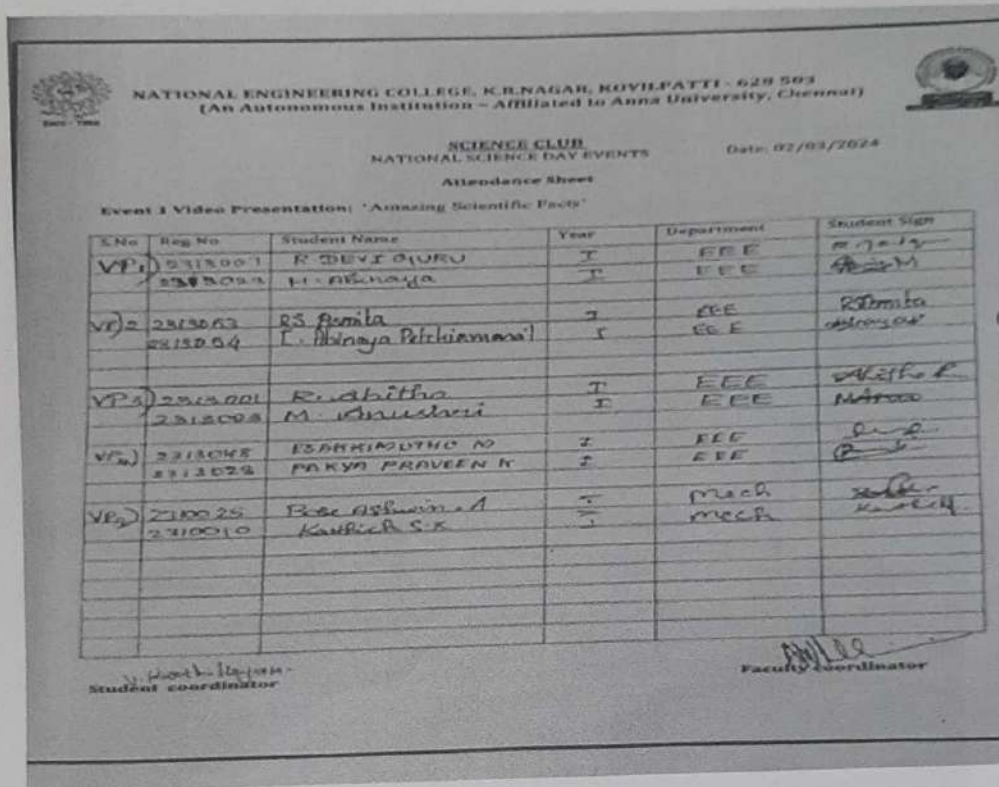 NATIONAL ENGINEERING COLLEGE, K.R.NAGAR, KOVILPATTI - 628 503
(An Autonomous Institution – Affiliated to Anna University, Chennai)
SCIENCE CLUB
NATIONAL SCIENCE DAY EVENTS
Date: 02/03/2024
Attendance Sheet
Event 1 Video Presentation: 'Amazing Scientific Facts'
S.No Reg No Student Name Year Department Student Sign
VP1) R DEVI GURU I EEE
H. Abinaya I EEE
VP)2 2313053 RS Asmita I EEE RS Asmita
2313004 I. Abinaya Petchiammal I EEE
VP3) 2313001 R. Abitha I EEE Abitha R
2313003 M. Anushri I EEE
VP4) 2313048 ESAKKIMUTHU N I EEE
2313028 PRAVEEN K I EEE
VP5) 2310025 Bose Ashwin. A I Mech
2310010 Karthick S.K I Mech
Student coordinator
Faculty coordinator